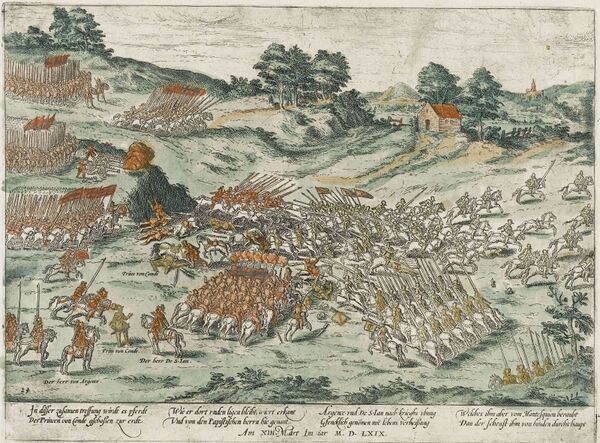 Prins von Condé
Prin von Conde.
Der herr De S. Ian
Der herr von Argence
In diser zusamen treffung wirdt es pferdt
Des Princen von Conde gschossen zur erdt.
Wie er dort unden ligen bleibt, wiert erkant
Und von den Papistischen herrn hie genant
Argence und De S. Ian nach krieghs ubung
Gfencklich genomen mit lebens verheissung
Welches ihm aber von Montesquion beraubt
Dan der scheust ihm von hinden durchs haupt
Am XIII. Mart Im iar M. D. LXIX.